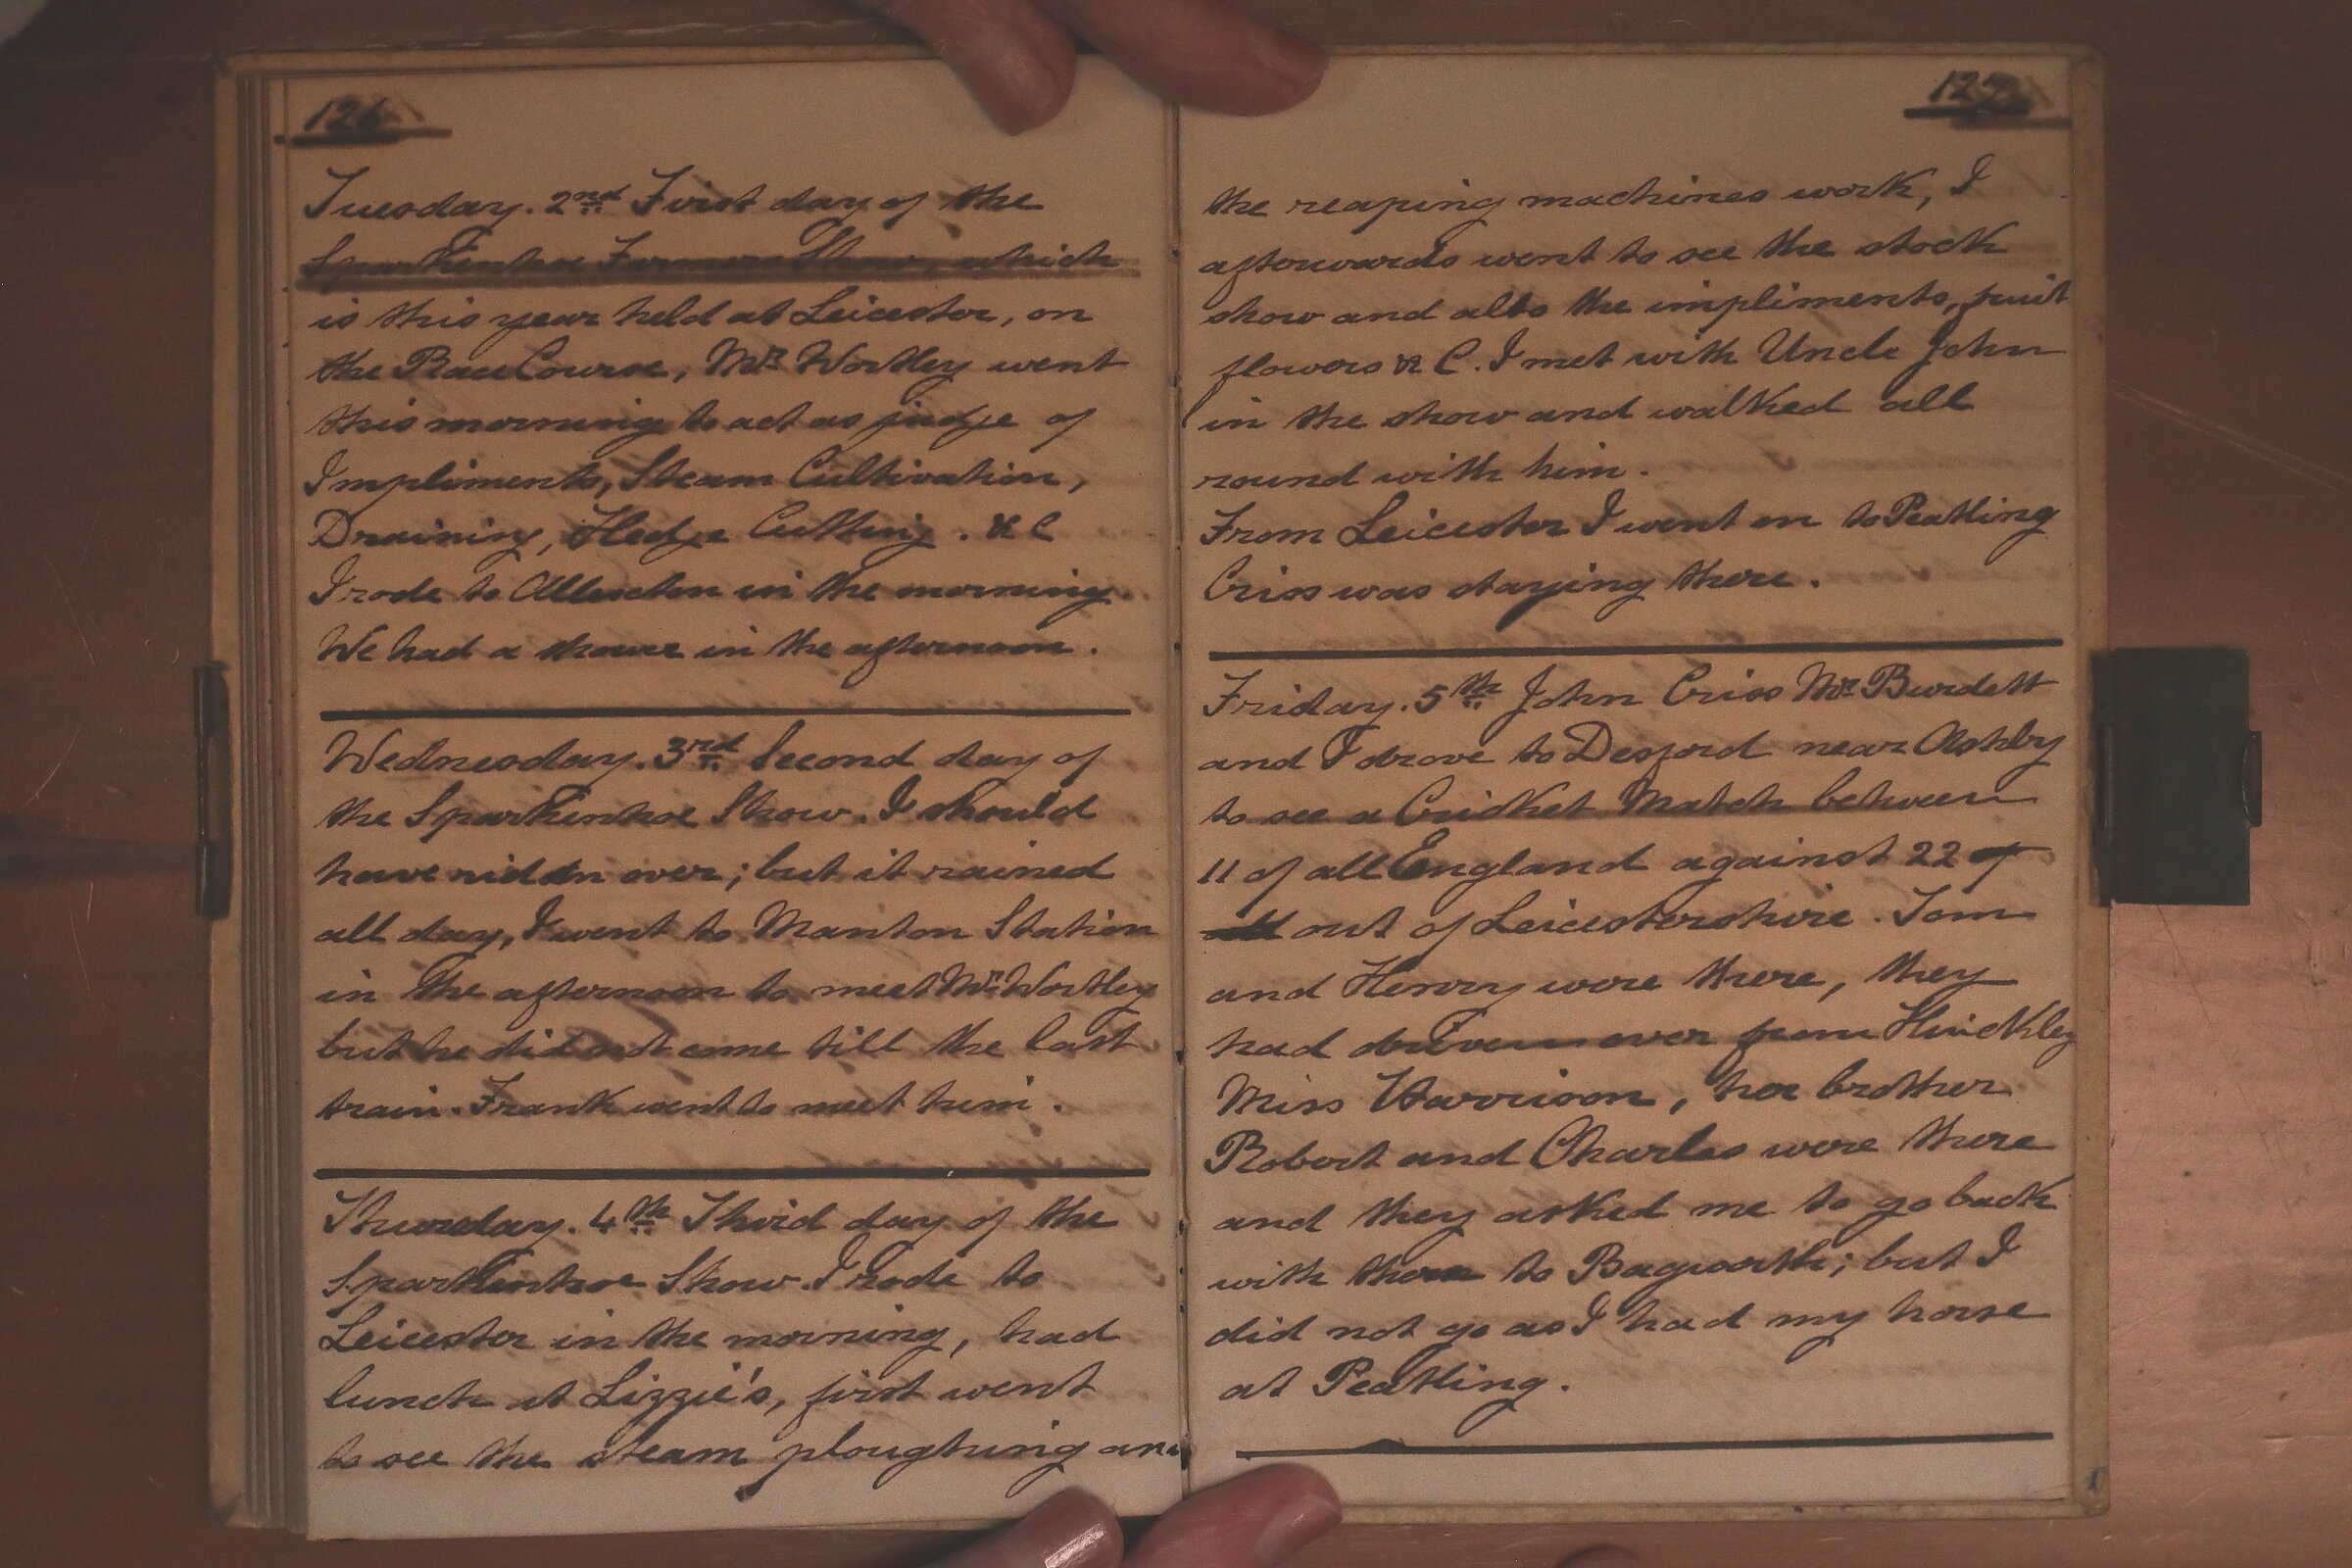 126
Tuesday. 2nd First day of the
Sparkenhoe Farmers Show, which
is this year held at Leicester, on
the Race Course, Mr Wortley went
this morning to act as judge of
Impliments, Steam Cultivation,
Draining, Hedge Cutting. &C
I rode to Allexton in the morning.
We had a shower in the afternoon.
Wednesday. 3rd Second day of
the Sparkenhoe Show. I should
have ridden over; but it rained
all day, I went to Manton Station
in the afternoon to meet Mr Wortley
but he did not come till the last
train. Frank went to meet him.
Thursday. 4th Third day of the
Sparkenhoe Show. I rode to
Leicester in the morning, had
lunch at Lizzie's, first went
to see the steam ploughing and
127
the reaping machines work, I
afterwards went to see the stock
show and also the impliments, fruit
flowers &C. I met with Uncle John
in the show and walked all
round with him.
From Leicester I went on to Peatling
Criss was staying there.
Friday. 5th John Criss Mr Burdett
and I drove to Desford near Ashby
to see a Cricket Match between
11 of all England against 22 of
all out of Leicestershire. Tom
and Henry were there, they
had driven over from Hinckley
Miss Harrison, her brother
Robert and Charles were there
and they asked me to go back
with them to Bagworth; but I
did not go as I had my horse
at Peatling.